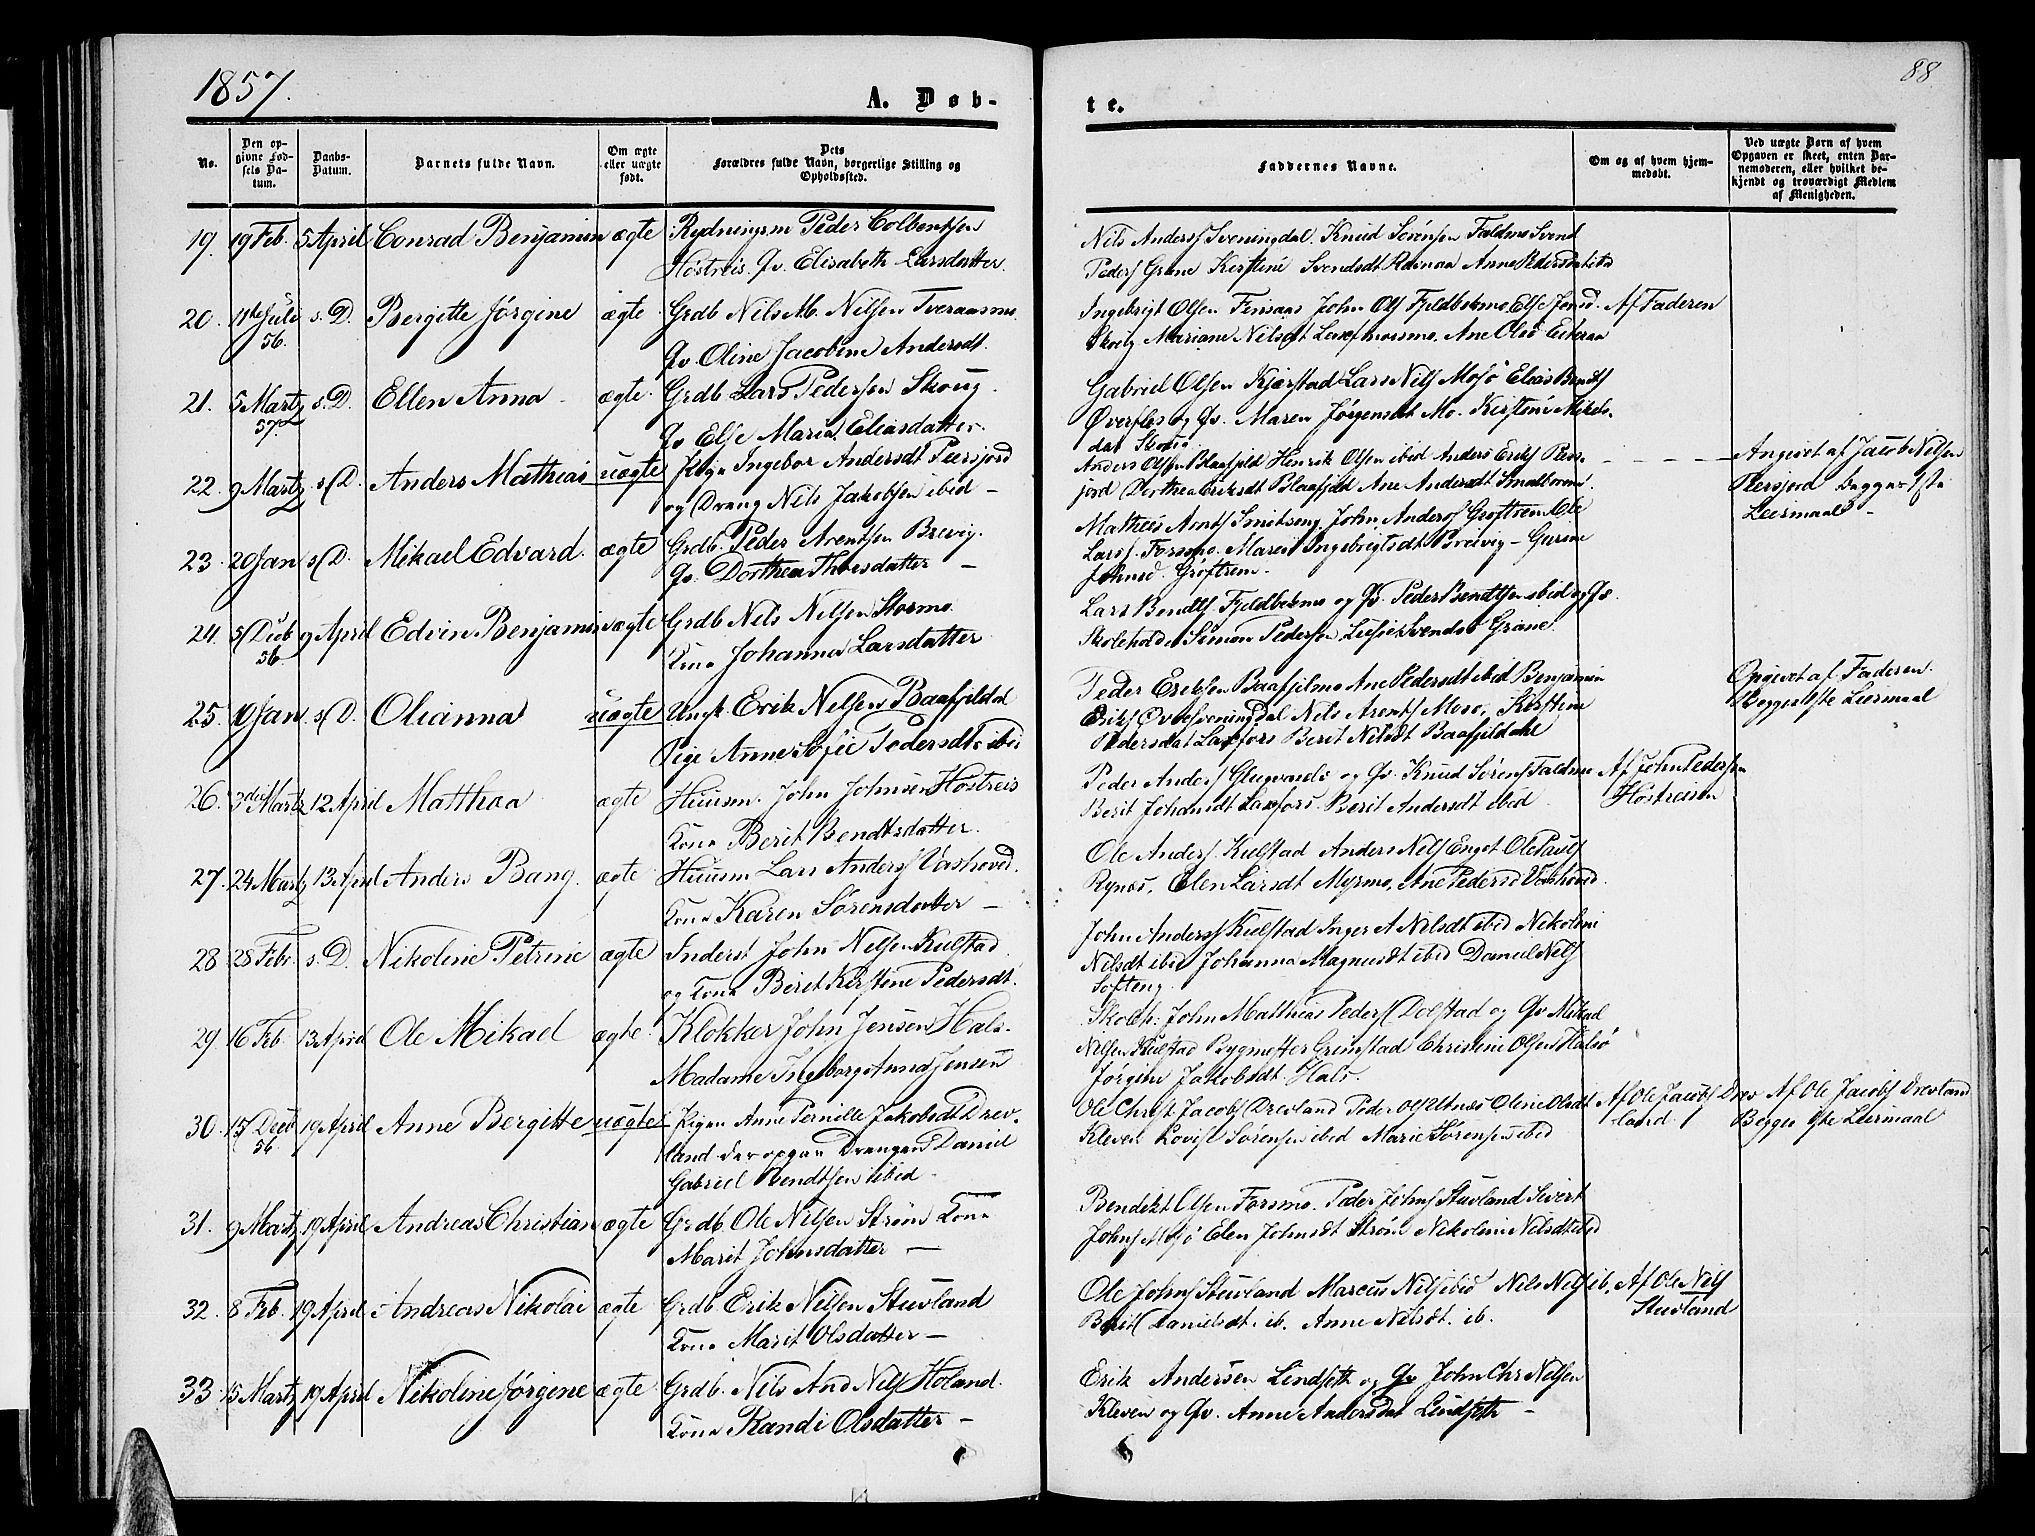 1857.
88
A. Døb-
te.
No.
Den op-
givne Fød-
sels Da-
tum.
Daabs-
Datum.
Barnets fulde Navn.
Om ægte
eller uægte
født.
Dets
Forældres fulde Navn, borgerlige Stilling og
Opholdssted.
Faddernes Navne.
Om og af hvem hjem-
medøbt.
Ved uægte Børn af hvem
Opgaven er skeet, enten Bar-
nemoderen, eller hvilket be-
kjendt og troværdigt Medlem
af Menigheden.
19. 19 Feb. 5 April Conrad Benjamin ægte Rydningsm Peder Colbentsen
Høstreis. Qv. Elisabeth Larsdatter.
Nils Anders Sveningdal. Knud Sørensen Faldmo Svend
Peders Grane Kirstine Svendsdt
20. 11te Juli s. D. Bergitte Jørgine ægte Grdb Nils M. Nilsen Tveraasmo.
56.
Qv. Oline Jacobine Andersdt.
Ingebrigt Olsen John Ols Fjeldbekmo Else Jonsd. Af Faderen
Skoug Mariane Nilsdt Ane Olsd
21. 5 Martz s. D. Ellen Anna ægte Grdb Lars Pedersen Skoug.
57.
Qv Else Maria Eleasdatter.
Gabriel Olsen Kjærstad Lars Nils Mosø Elias Bendts
Øverfles og Qv. Maren Jørgensdat Mo. Kirstine Mikels-
dat Skoug.
22. 9 Martz s. D. Anders Mathias uægte Pigen Ingebor Andersdt Peersjord
og Dreng Nils Jakobsen ibid
Anders Olsen Blaafjeld Henrik Olsen ibid Anders Eriks Peers-
jord Dorthea Eriksdt Blaafjeld Ane Andersdt
Angivet af Jacob Nilsen
Peersjord Begges 1ste
Leiermaal
23. 20 Jan s. D. Mikael Edvard. ægte Grdb. Peder Arentsen Brevig.
Qv. Dorthea Thoresdatter
Mathias Arnts Smitseng. John Anders Grøftrem Ole
Lars Forsmo. Maren Ingebrigtsdt Breivig - Gurine
Johnsd. Grøftrem.
24. 5 Deeb 9 April Edvin Benjamin ægte Grdb Nils Nilsen Stormo
56.
Kone Johanna Larsdatter
Lars Bendts. Fjeldbekmo og Qv. Peder Bendtsen ibid og Qv.
Skoleholder Simon Pedersen Svendsd Grane.
25. 10 Jan s. D. Olianna uægte Ungk Erik Nilsen Baafjeldal
Pige Anne Sofie Pedersdt ibid
Peder Eriksen Baafjelmo Ane Pedersdt ibid Benjamin
Eriks Øvre Sveningdal Nils Arents Moso, Kirstine
Pedersdat Laxfors Berit Nilsdt Baafjeldahl
Opgivet af Faderen.
Begges 1ste Leiermaal
26. 3die Martz 12 April Matthea ægte Huusm. John Johnsen Høstreis
Kone Berit Bendtsdatter.
Peder Anders Glugvands og Qv. Knud Sørens Faldmo
Berit Johansdt Laxfors. Berit Andersdt ibid
Af John Pedersen
Høstreisen
27. 24 Martz 13 April Anders Bang. ægte Huusm Lars Anders Vashoved.
Kone Karen Sørensdatter
Ole Anders Kulstad Anders Nils Enget Ole Pauls
Rynes. Elen Larsdt Myrmo, Ane Pedersd Vashoved.
28. 28 Febr. s. D. Nikoline Petrine ægte Inderst John Nilsen Kulstad
og Kone Berit Kirstine Pedersdt.
John Anders Kulstad Inger A Nilsdt ibid Nikoline
Nilsdt ibid Johanna Magnusdt ibid Daniel Nils
Softeng.
29. 16 Feb. 13 April Ole Mikael ægte Klokker John Jensen Hals.
Madame Ingeborg Anna Jensen
Skoleh: John Matthias Peders Dolstad og Qv Mikael
Nilsen Kulstad Bygmester Grimstad Christine Olsen Halsø
Jørgine Jakobsdt Hals.
30. 15 Deeb 19 April Anne Bergitte uægte Pigen Anne Pernille Jakobsdt Drev-
56.
land der opgav Drengen Daniel
Gabriel Bendtsen ibid
Ole Christ Jacobs Drevland Peder Ols Utnes Oline Olsdt
Kleven Lovise Sørensen ibid Marie Sørensen ibid
Af Ole Jacobs Drev
land
Af Ole Jacobs Drevland
Begges 1ste Leiermaal
31. 9 Martz 19 April Andreas Christian ægte Grdb. Ole Nilsen Strøm Kone
Marit Johnsdatter
Bendikt Olsen Forsmo. Peder Johns Stuvland Sivert
Johns Mosø Elen Johnsdt Strøm Nikoline Nilsdt ibid
32. 8 Feb. 19 April Andreas Nikolai ægte Grdb. Erik Nilsen Stuvland
Kone Marit Olsdatter
Ole Johns Stuvland Marcus Nils ibid Nils Nils ib.
Berit Danielsdt. ib. Anne Nilsdt. ib.
Af Ole Nils
Stuvland
33. 15 Martz 19 April Nikoline Jørgine ægte Grdb. Nils And Nils Høland.
Kone Randi Olsdatter
Erik Andersen Lindseth og Qv John Chr Nilsen
Kleven og Qv. Anne Andersdat Lindseth